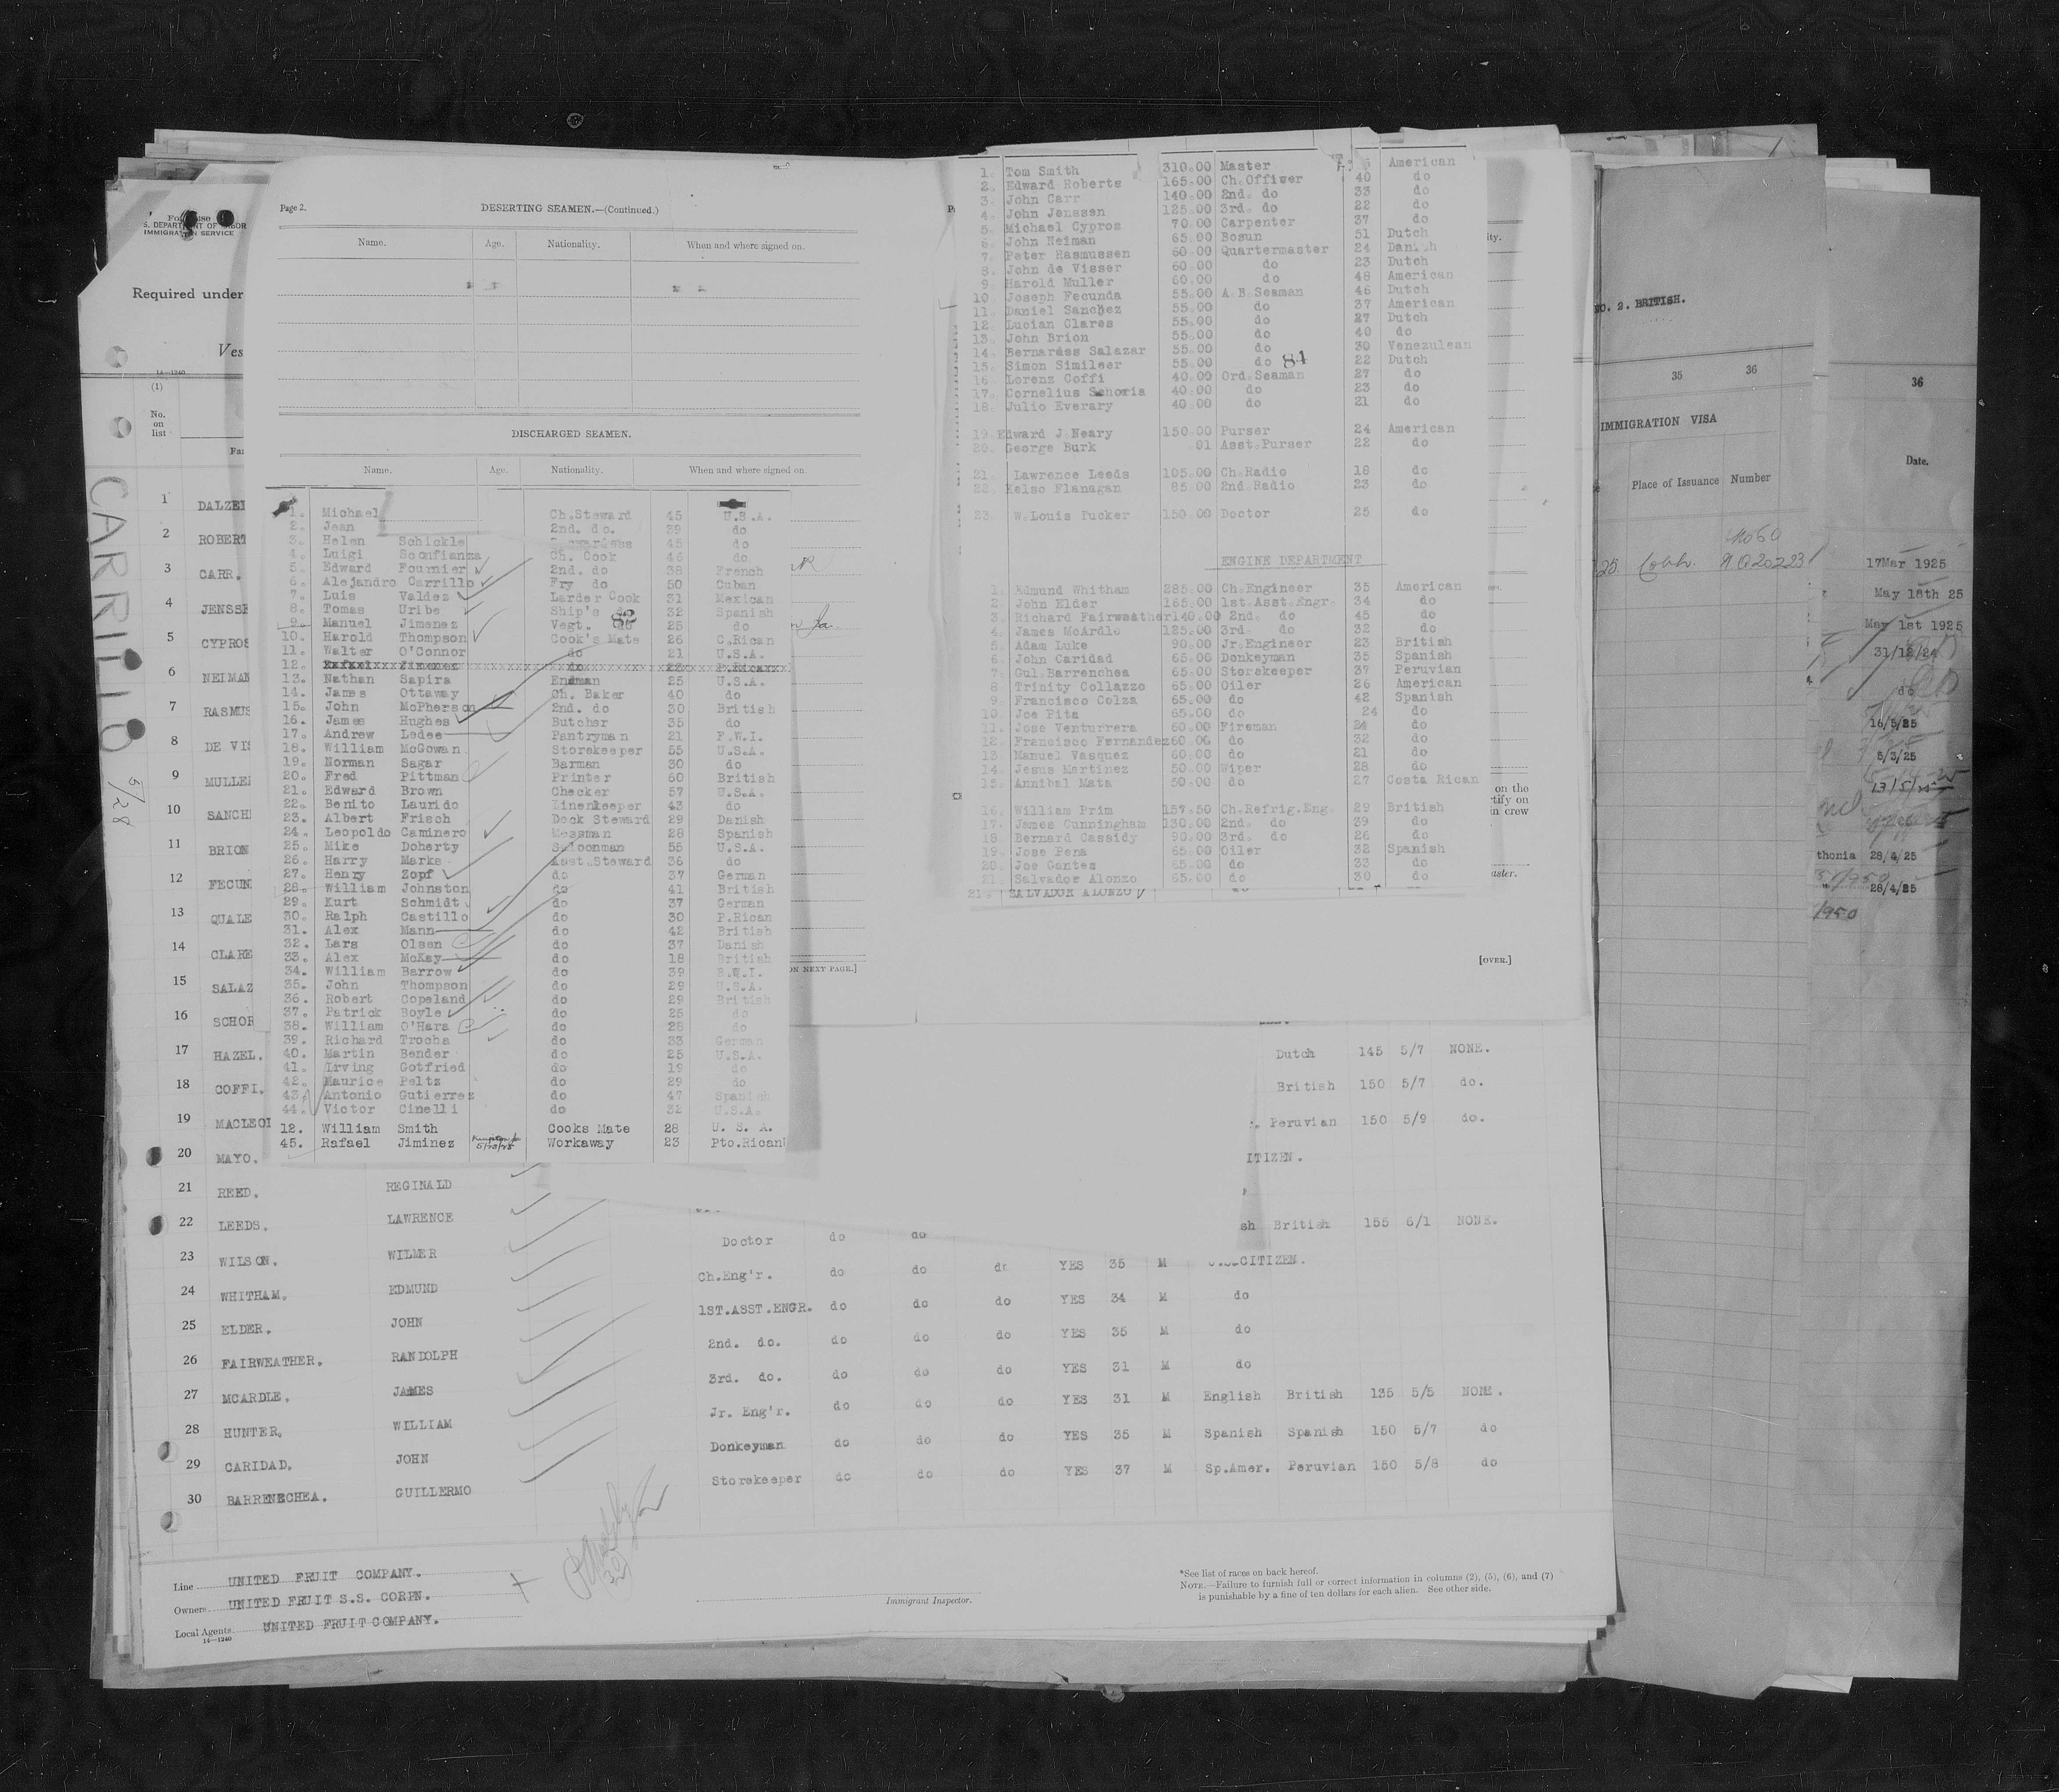 Page 2.
DESERTING SEAMEN.—(Continued.)
Name. Age. Nationality. When and where signed on.
DISCHARGED SEAMEN.
Name. Age. Nationality. When and where signed on.
1. Michael Ch.Steward 45 U.S.A.
2. Jean 2nd. do. 39 do
3. Helen Schickle 45 do
4. Luigi Sconfianza Ch. Cook 46 do
5. Edward Fournier 2nd. do 38 French
6. Alejandro Carrillo Fry do 50 Cuban
7. Luis Valdez Larder Cook 31 Mexican
8. Tomas Uribe Ship's do 32 Spanish
82
9. Manuel Jimenez Vegt. do 25 do
10. Harold Thompson Cook's Mate 26 C.Rican
11. Walter O'Connor do 21 U.S.A.
12.
13. Nathan Sapira Endman 25 U.S.A.
14. James Ottaway Ch. Baker 40 do
15. John McPherson 2nd. do 30 British
16. James Hughes Butcher 35 do
17. Andrew Ledee Pantryman 21 F.W.I.
18. William McGowan Storekeeper 55 U.S.A.
19. Norman Sagar Barman 30 do
20. Fred Pittman Printer 60 British
21. Edward Brown Checker 57 U.S.A.
22. Benito Laurido Linenkeeper 43 do
23. Albert Frisch Deck Steward 29 Danish
24. Leopoldo Caminero Messman 28 Spanish
25. Mike Doherty Saloonman 55 U.S.A.
26. Harry Marks Asst.Steward 36 do
27. Henry Zopf do 37 German
28. William Johnston do 41 British
29. Kurt Schmidt do 37 German
30. Ralph Castillo do 30 P.Rican
31. Alex Mann do 42 British
32. Lars Olsen do 37 Danish
33. Alex McKay do 18 British
34. William Barrow do 39 B.W.I.
35. John Thompson do 29 U.S.A.
36. Robert Copeland do 29 British
37. Patrick Boyle do 25 do
38. William O'Hara do 28 do
39. Richard Trocha do 33 German
40. Martin Bender do 25 U.S.A.
41. Irving Gotfried do 19 do
42. Maurice Peltz do 29 do
43. Antonio Gutierrez do 47 Spanish
44. Victor Cinelli do 32 U.S.A.
12. William Smith Cooks Mate 28 U. S. A.
45. Rafael Jiminez Workaway 23 Pto.Rican
1. Tom Smith 310.00 Master American
2. Edward Roberts 165.00 Ch.Offiwer 40 do
3. John Carr 140.00 2nd. do 33 do
4. John Jenssen 125.00 3rd. do 22 do
5. Michael Cypros 70.00 Carpenter 37 do
6. John Heiman 65.00 Bosun 51 Dutch
7. Peter Rasmussen 60.00 Quartermaster 24 Danish
8. John de Visser 60.00 do 23 Dutch
9. Harold Muller 60.00 do 48 American
10. Joseph Fecunda 55.00 A.B.Seaman 46 Dutch
11. Daniel Sanchez 55.00 do 37 American
12. Lucian Clares 55.00 do 27 Dutch
13. John Brion 55.00 do 40 do
14. Bernardss Salazar 55.00 do 30 Venezulean
15. Simon Simileer 55.00 do 22 Dutch
81
16. Lorenz Coffi 40.00 Ord.Seaman 27 do
17. Cornelius Schoria 40.00 do 23 do
18. Julio Everary 40.00 do 21 do
19. Edward J.Neary 150.00 Purser 24 American
20. George Burk .01 Asst.Purser 22 do
21. Lawrence Leeds 105.00 Ch.Radio 18 do
22. Kelso Flanagan 85.00 2nd.Radio 23 do
23. W.Louis Tucker 150.00 Doctor 25 do
ENGINE DEPARTMENT
1. Edmund Whitham 285.00 Ch.Engineer 35 American
2. John Elder 165.00 1st.Asst.Engr. 34 do
3. Richard Fairweather 140.00 2nd. do 45 do
4. James McArdle 125.00 3rd. do 32 do
5. Adam Luke 90.00 Jr.Engineer 23 British
6. John Caridad 65.00 Donkeyman 35 Spanish
7. Gul.Barrenchea 65.00 Storekeeper 37 Peruvian
8 Trinity Collazzo 65.00 Oiler 26 American
9. Francisco Colza 65.00 do 42 Spanish
10. Joe Pita 65.00 do 24 do
11. Jose Venturrera 60.00 Fireman 24 do
12. Francisco Fernandez 60.00 do 32 do
13 Manuel Vasquez 60.00 do 21 do
14. Jesus Martinez 50.00 Wiper 28 do
15. Annibal Mata 50.00 do 27 Costa Rican
16. William Prim 157.50 Ch.Refrig.Eng. 29 British
17. James Cunningham 130.00 2nd. do 39 do
18 Bernard Cassidy 90.00 3rd. do 26 do
19. Jose Pena 65.00 Oiler 32 Spanish
20. Joe Gantes 65.00 do 33 do
21. Salvador Alonzo 65.00 do 30 do
21. SALVADOR ALONZO
ON NEXT PAGE.]
[OVER.]
S. DEPARTMENT OF LABOR
IMMIGRATION SERVICE
Required under
Ves
14—1240
(1)
No. on list
Fa
CARRILLO 5/28
1 DALZE
2 ROBERT
3 CARR.
4 JENSSE
5 CYPROS
6 NEIMAN
7 RASMUS
8 DE VIS
9 MULLE
10 SANCH
11 BRION
12 FECUN
13 QUALE
14 CLARE
15 SALAZ
16 SCHOR
17 HAZEL. Dutch 145 5/7 NONE.
18 COFFI. British 150 5/7 do.
19 MACLEOD Peruvian 150 5/9 do.
20 MAYO. ITIZEN.
21 REED. REGINALD
22 LEEDS. LAWRENCE sh British 155 6/1 NONE.
23 WILSON. WILMER Doctor do do CITIZEN.
24 WHITHAM. EDMUND Ch.Eng'r. do do do YES 35 M do
25 ELDER. JOHN 1ST.ASST.ENGR. do do do YES 34 M do
26 FAIRWEATHER. RANDOLPH 2nd. do. do do do YES 35 M do
27 MCARDLE. JAMES 3rd. do. do do do YES 31 M
28 HUNTER. WILLIAM Jr. Eng'r. do do do YES 31 M English British 135 5/5 NONE.
29 CARIDAD. JOHN Donkeyman do do do YES 35 M Spanish Spanish 150 5/7 do
30 BARRENECHEA. GUILLERMO Storekeeper do do do YES 37 M Sp.Amer. Peruvian 150 5/8 do
Line UNITED FRUIT COMPANY.
Owners UNITED FRUIT S.S. CORPN.
Local Agents UNITED FRUIT COMPANY.
14—1240
Immigrant Inspector.
*See list of races on back hereof.
NOTE.—Failure to furnish full or correct information in columns (2), (5), (6), and (7)
is punishable by a fine of ten dollars for each alien. See other side.
NO. 2. BRITISH.
35 36
IMMIGRATION VISA
Place of Issuance Number
36
Date.
17Mar 1925
May 18th 25
May 1st 1925
31/12/24
do
16/5/25
5/3/25
13/5/25
thonia 28/4/25
" 28/4/25
1950